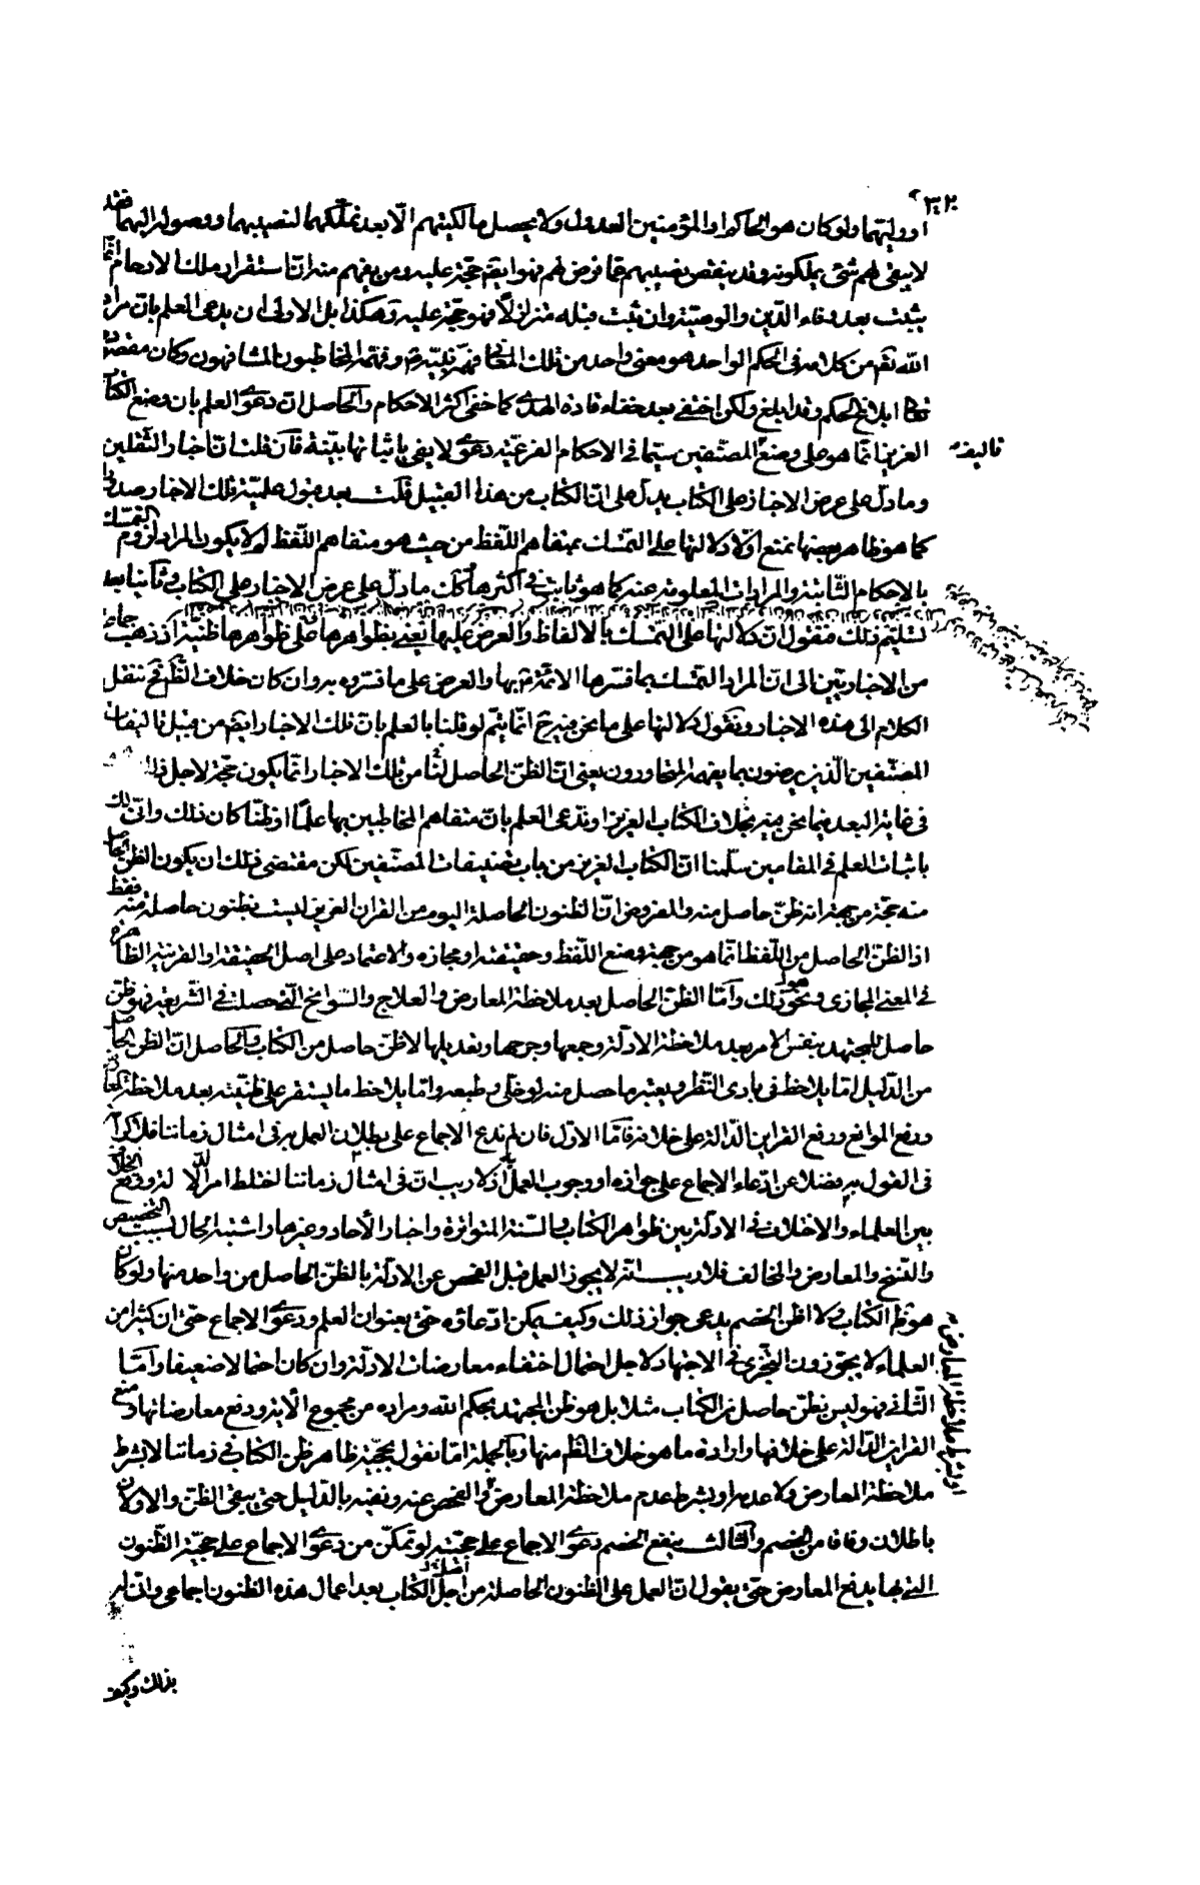 او وليتهما ولو كان هو الحاكم او المؤمنين العدول ولا يحصل مالكيتهم الّا بعد تملكهما لنصيبهما ووصوله اليهما فقد
لا يبقى لهم شئ يملكونه وقد ينقص نصيبهم عما فرض لهم فهو ايضا حجة عليه ومن يفهم منه انّ استقرار ملك الارحام انّما
يثبت بعد وفاء الدّين والوصيّة وان ثبت قبله متزلزلاً فهو حجّة عليه وهكذا بل الاولى ان يدعى العلم بانّ مراد
الله تعم من كلامه فى الحكم الواحد هو معنى واحد من تلك المعانى فهّمه نبيّه ص وفهّمه المخاطبون المشافهون وكان مقصوده
ابلاغ الحكم وقد ابلغ ولكن اختفى بعد خفاء قادة الهدى كما خفى اكثر الاحكام والحاصل انّ دعوى العلم بان وضع الكتاب
العزيز انّما هو على وضع تاليف المصنّفين سيّما فى الاحكام الفرعيّة دعوى لا يفى باثباتها بيّنة فان قلت انّ اخبار الثقلين
وما دلّ على عرض الاخبار على الكتاب يدلّ على انّ الكتاب من هذا القبيل قلت بعد قبول علميّة تلك الاخبار صدورا
كما هو ظاهر بعضها نمنع اوّلا دلالتها على التمسّك بمتفاهم اللّفظ من حيث هو متفاهم اللّفظ لم لا يكون المراد لزوم التمسّك
بالاحكام الثّابتة والمرادات المعلومة عنه كما هو ثابت فى اكثرها وكك ما دلّ على عرض الاخبار على الكتاب وثانيا بعد
تسليم ذلك فنقول انّ دلالتها على التمسّك بالالفاظ والعرض عليها يعنى بظواهرها على ظواهرها ظنيّة اذ ذهب جماعة
من الاخباريّين الى انّ المراد التمسّك بما فسّرها الائمّة ع بها والعرض على ما فسّروه به وان كان خلاف الظّ فح ننقل
الكلام الى هذه الاخبار ونقول دلالتها على ما نحن فيه ح انّما يتمّ لو قلنا بالعلم بانّ تلك الاخبار ايضا من قبيل تاليفات
المصنّفين الّذين يرضون بما يفهمه المتحاورون يعنى انّ الظنّ الحاصل لنا من تلك الاخبار انّما يكون حجّة لاجل ذلك
فى غاية البعد فيما نحن فيه بخلاف الكتاب العزيز او ندّعى العلم بانّ متفاهم المخاطبين بها علماً او ظنّا كان ذلك وانّى لك
باثبات العلم فى المقامين سلّمنا انّ الكتاب العزيز من باب تصنيفات المصنّفين لكن مقتضى ذلك ان يكون الظنّ الحاصل
منه حجّة من جهة انه ظنّ حاصل منه والمفروض انّ الظنون الحاصلة اليوم من القران العزيز ليست بظنون حاصلة منه فقط
اذ الظنّ الحاصل من اللّفظ انّما هو من جهة وضع اللّفظ وحقيقته او مجازه والاعتماد على اصل الحقيقة او القرينة الظّاهرة
فى المعنى المجازى ونحو ذلك وامّا الظنّ الحاصل بعد ملاحظة المعارض والعلاج والسّوانح الّتى حصلت فى الشّريعة فهو ظنّ
حاصل للمجتهد بنفس الامر بعد ملاحظة الادلّة وجمعها وجرحها وتعديلها لا ظنّ حاصل من الكتاب والحاصل انّ الظن الحاصل
من الدّليل امّا يلاحظ فى بادى النّظر ويعتبر ما حصل منه لو خلّى وطبعه وامّا يلاحظ ما يستقر على ظنيّته بعد ملاحظة المعارض
ورفع الموانع ودفع القراين الدّالة على خلافه فامّا الاوّل فان لم ندع الاجماع على بطلان العمل به فى امثال زماننا فلا
فى القول به فضلا عن ادّعاء الاجماع على جوازه او وجوب العمل اذ لا ريب انّ فى امثال زماننا اختلط امر الادلة ووقع الخلاف
بين العلماء والاختلاف فى الادلّة بين ظواهر الكتاب والسنّة المتواترة واخبار الأحاد وغيرها واشتبه الحال بسبب التخصيص
والنّسخ والمعارض والمخالف فلا ريب انّه لا يجوز العمل قبل الفحص عن الادلّة بالظنّ الحاصل من واحد منها ولو كان
هو ظ الكتاب ولا اظن الخصم يدعى جواز ذلك وكيف يمكن ادّعاؤه حتى بعنوان العلم ودعوى الاجماع حتى ان كثيرا من
العلماء لا يجوّزون التجزّى فى الاجتهاد لاجل احتمال اختفاء معارضات الادلّة وان كان احتمالا ضعيفا وامّا
الثّانى فهو ليس بظنّ حاصل من الكتاب مثلا بل هو ظن المجتهد بحكم الله ومراده من مجموع الأية ودفع معارضاتها ومنع
القراين الدّالة على خلافها وارادة ما هو خلاف الظ منها وبالجملة امّا نقول بحجيّة ظاهر ظن الكتاب فى زماننا لا بشرط
ملاحظة المعارض ولا عدمه او بشرط عدم ملاحظة المعارض او بشرط ملاحظة المعارض والفحص عنه ونفيه بالدّليل حتى يبقى الظنّ والاولان
باطلان وفاقا من الخصم والثالث ينفع الخصم دعوى الاجماع على حجيّته لو تمكّن من دعوى الاجماع على حجيّة الظّنون
التى بها يدفع المعارض حتى يقول انّ العمل على الظنون الحاصلة من اجل الكتاب بعد اعمال هذه الظنون اجماعى وانّى له
بذلك وكيف